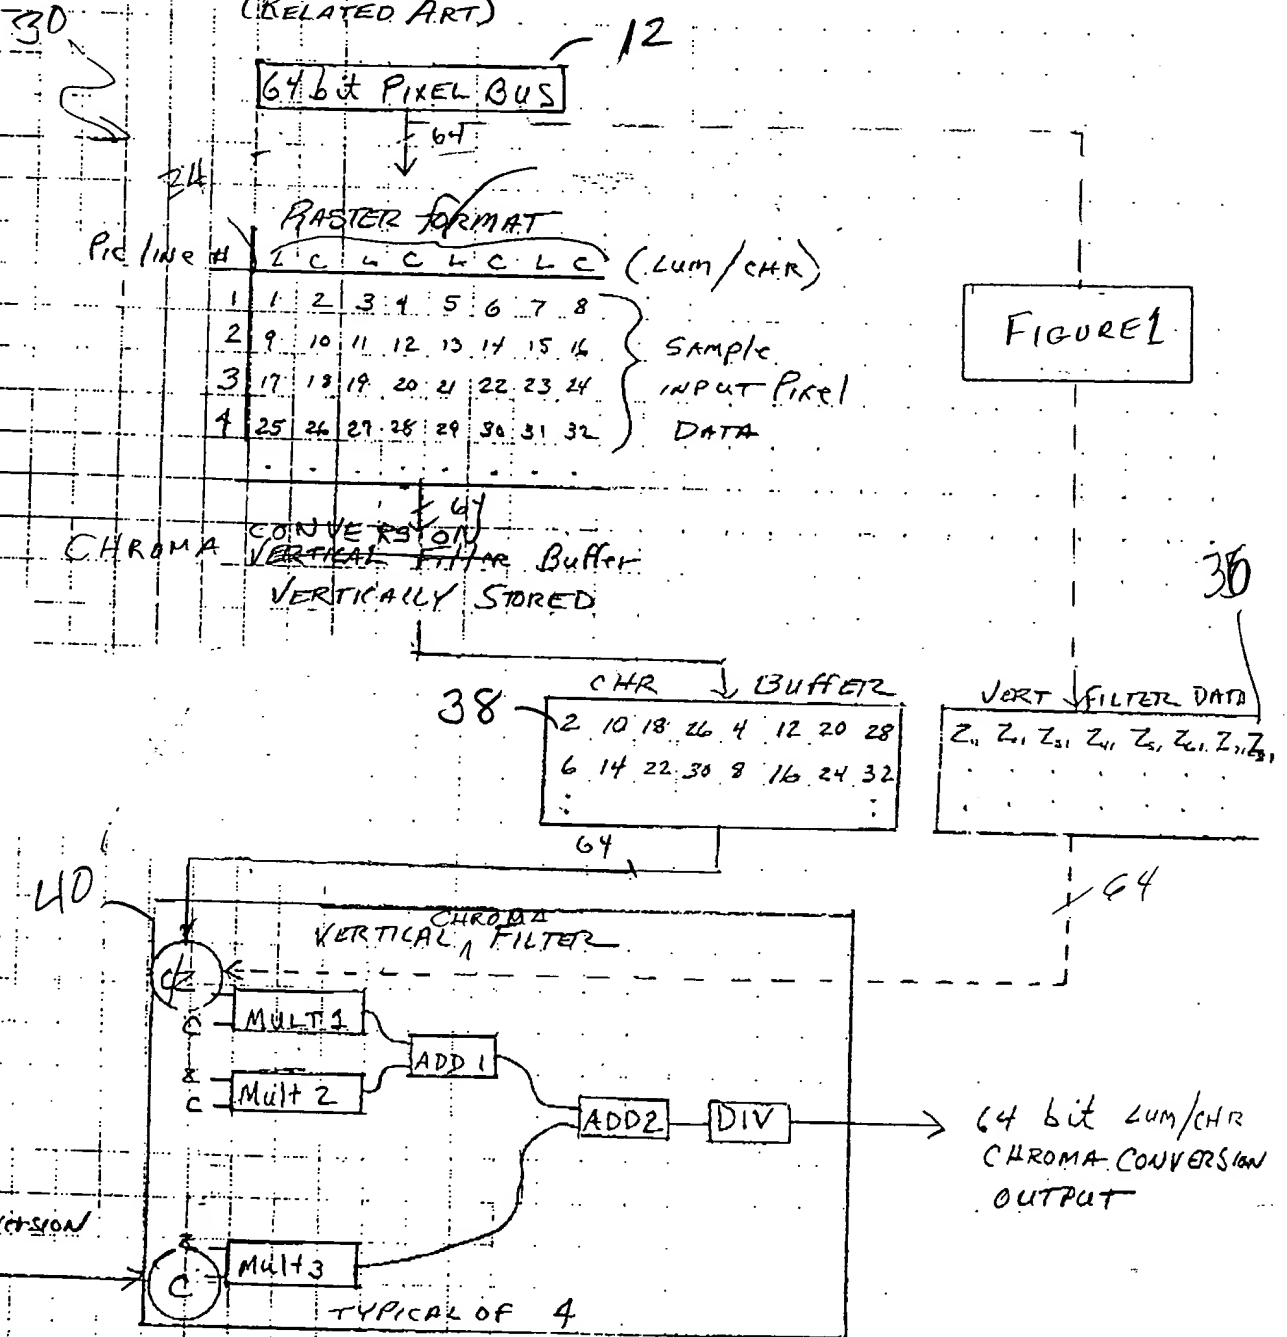 (RELATED ART)
30
12
64 bit PIXEL BUS
64
24
RASTER FORMAT
Pic line # L C L C L C L C (LUM/CHR)
1 1 2 3 4 5 6 7 8
2 9 10 11 12 13 14 15 16
3 17 18 19 20 21 22 23 24
4 25 26 27 28 29 30 31 32
SAMPLE
INPUT Pixel
DATA
FIGURE 1
64
CONVERSION
CHROMA VERTICAL Filter Buffer
VERTICALLY STORED
38
CHR BUFFER
2 10 18 26 4 12 20 28
6 14 22 30 8 16 24 32
VERT FILTER DATA
Z11 Z21 Z31 Z41 Z51 Z61 Z71 Z81
64
64
40
CHROMA
VERTICAL ^ FILTER
C
MULT 1
Z
C
Mult 2
ADD 1
ADD2
DIV
64 bit LUM/CHR
CHROMA CONVERSION
OUTPUT
Z
C
Mult 3
TYPICAL OF 4